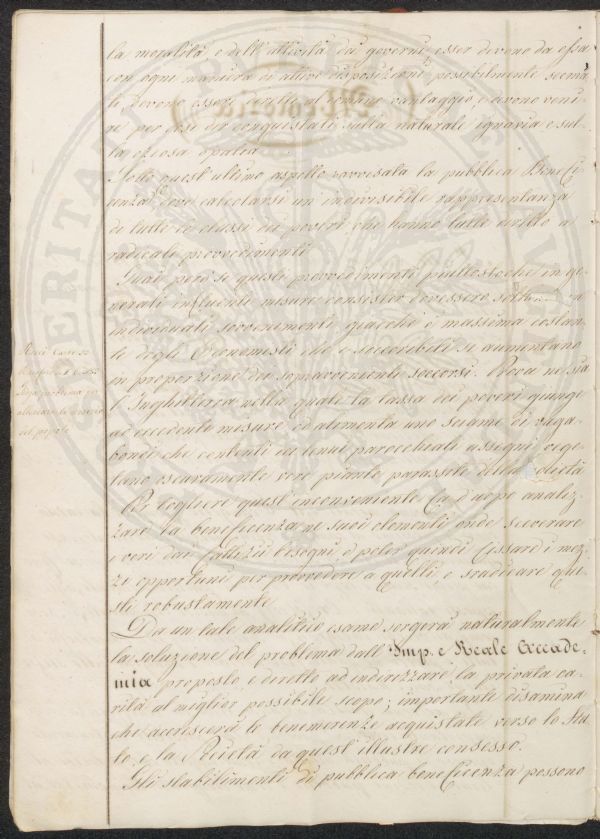 la moralità e dell'attività dei governi esser devono da essa
con ogni maniera di attive disposizioni possibilmente scema
te devono essere dirette al comune vantaggio, e devono veni
re per così dir conquistati sulla naturale ignavia e sul
la oziosa apatia.
Sotto quest'ultimo aspetto ravvisata la pubblica Benefi
cenza deve calcolarsi un indivisibile rappresentanza
di tutte le classi dei poveri che hanno tutte diritto a
radicali provvedimenti
Guai però se questi provvedimenti piuttostochè in ge
nerali influenti misure consister dovessero
individuali sovvenimenti, giacchè è massima costan
te degli Economisti che i soccorribili si aumentano
in proporzione dei sopravvenienti soccorsi. Prova ne sia
l'Inghilterra nella quale la tassa dei poveri giunge
ad eccedente misura ed alimenta uno sciame di vaga
bondi che contenti dei tenui parocchiali assegni vege
tano oscuramente vere piante parassite della società
Per togliere quest'inconveniente fa d'uopo analiz
zare la beneficenza ne' suoi elementi onde sceverare
i veri dai fittizii bisogni e poter quindi fissare i mez
zi opportuni per provvedere a quelli e sradicare que
sti robustamente
Da un tale analitico esame sorgerà naturalmente
la soluzione del problema dall'Imp. e Reale Accade-
mia proposto e diretto ad indirizzare la privata ca
rità al miglior possibile scopo; importante disamina
che accrescerà le benemerenze acquistate verso lo Sta
to e la Società da quest'illustre consesso.
Gli stabilimenti di pubblica beneficenza possono
del popolo